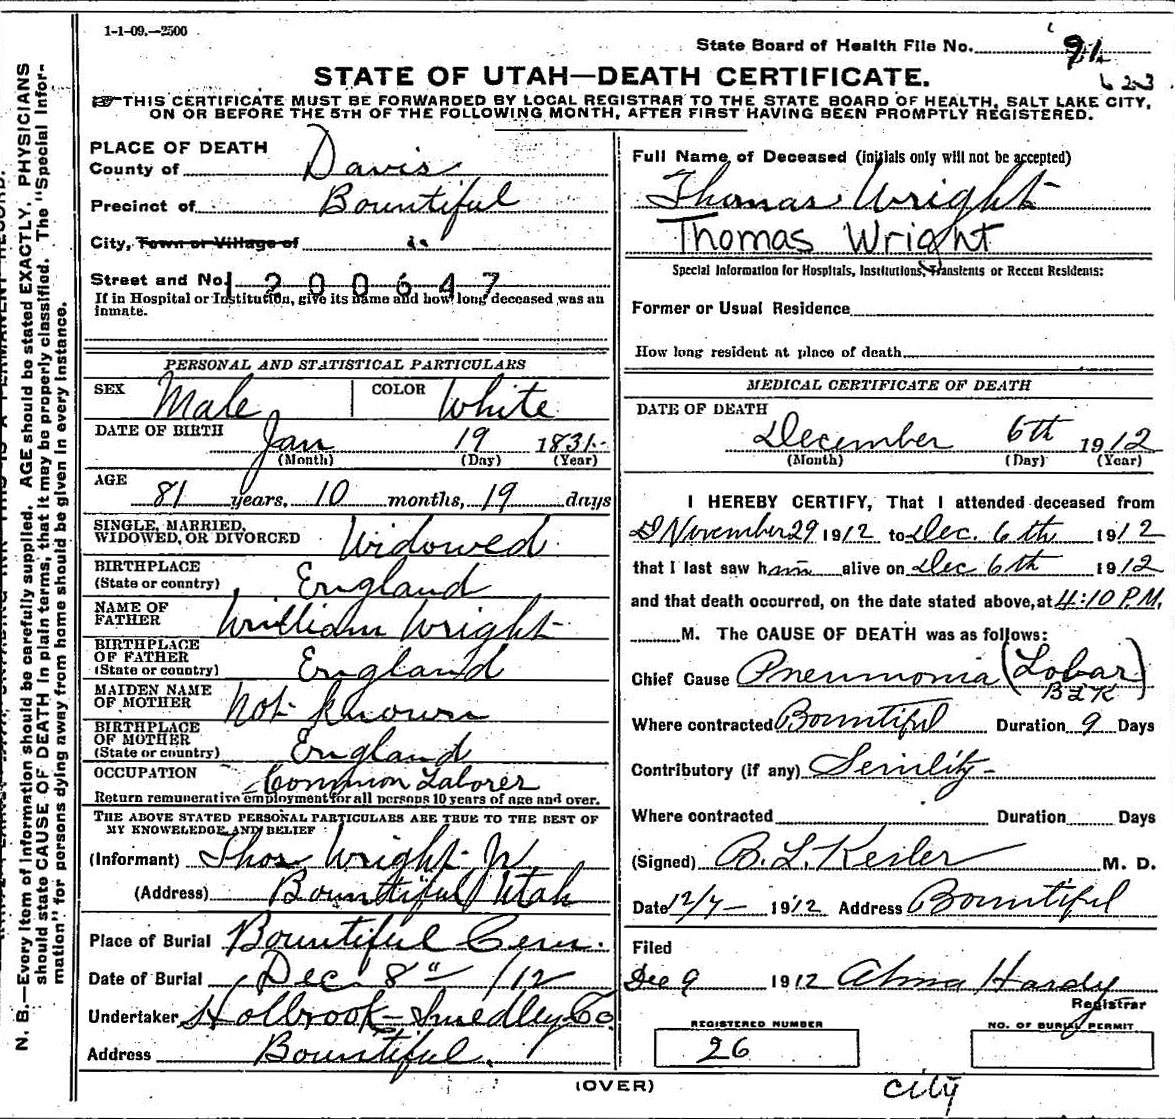 1-1-09.—2500
State Board of Health File No. 91
623
STATE OF UTAH—DEATH CERTIFICATE.
☞THIS CERTIFICATE MUST BE FORWARDED BY LOCAL REGISTRAR TO THE STATE BOARD OF HEALTH, SALT LAKE CITY,
ON OR BEFORE THE 5TH OF THE FOLLOWING MONTH, AFTER FIRST HAVING BEEN PROMPTLY REGISTERED.
N. B.—Every item of information should be carefully supplied. AGE should be stated EXACTLY. PHYSICIANS
should state CAUSE OF DEATH in plain terms, that it may be properly classified. The "Special Infor-
mation" for persons dying away from home should be given in every instance.
PLACE OF DEATH
County of Davis
Precinct of Bountiful
City, Town or Village of
Street and No. 1200647
If in Hospital or Institution, give its name and how long deceased was an
inmate.
PERSONAL AND STATISTICAL PARTICULARS
SEX Male COLOR White
DATE OF BIRTH Jan 19 1831
(Month) (Day) (Year)
AGE 81 years, 10 months, 19 days
SINGLE, MARRIED,
WIDOWED, OR DIVORCED Widowed
BIRTHPLACE
(State or country) England
NAME OF
FATHER William Wright
BIRTHPLACE
OF FATHER
(State or country) England
MAIDEN NAME
OF MOTHER Not known
BIRTHPLACE
OF MOTHER
(State or country) England
OCCUPATION Common Laborer
Return remunerative employment for all persons 10 years of age and over.
THE ABOVE STATED PERSONAL PARTICULARS ARE TRUE TO THE BEST OF
MY KNOWELEDGE AND BELIEF
(Informant) Thos Wright Jr
(Address) Bountiful Utah
Place of Burial Bountiful Cem.
Date of Burial Dec 8" /12
Undertaker Holbrook-Smedley Co
Address Bountiful.
Full Name of Deceased (initials only will not be accepted)
Thomas Wright
Thomas Wright
Special Information for Hospitals, Institutions, Transients or Recent Residents:
Former or Usual Residence
How long resident at place of death
MEDICAL CERTIFICATE OF DEATH
DATE OF DEATH
December 6th 1912
(Month) (Day) (Year)
I HEREBY CERTIFY, That I attended deceased from
November 29 1912 to Dec. 6th 1912
that I last saw him alive on Dec 6th 1912
and that death occurred, on the date stated above, at 4:10 P.M.
M. The CAUSE OF DEATH was as follows:
Chief Cause Pneumonia (Lobar)
BLK
Where contracted Bountiful Duration 9 Days
Contributory (if any) Senility-
Where contracted Duration Days
(Signed) B. L. Kesler M. D.
Date 12/7— 1912 Address Bountiful
Filed
Dec 9 1912 Alma Hardy
Registrar
REGISTERED NUMBER
26
NO. OF BURIAL PERMIT
(OVER)
city